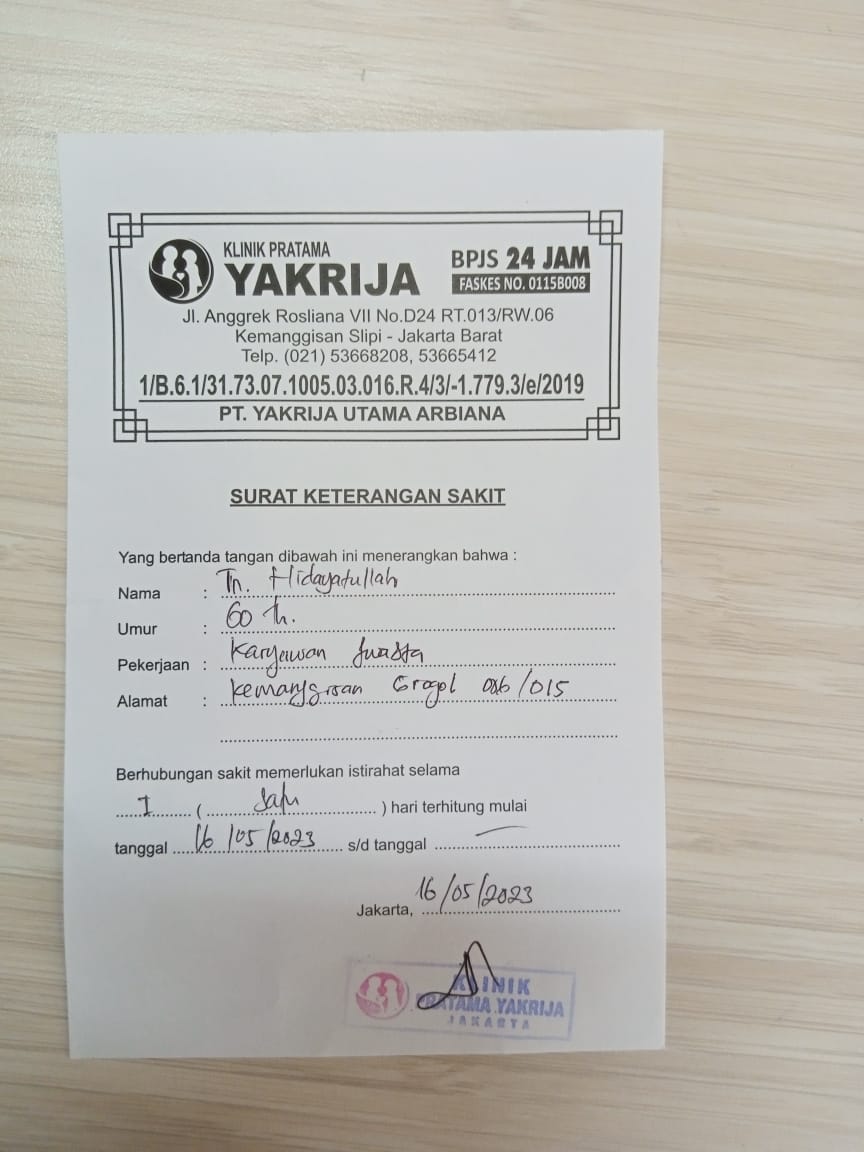 KLINIK PRATAMA
YAKRIJA
BPJS 24 JAM
FASKES NO. 0115B008
Jl. Anggrek Rosliana VII No.D24 RT.013/RW.06
Kemanggisan Slipi - Jakarta Barat
Telp. (021) 53668208, 53665412
1/B.6.1/31.73.07.1005.03.016.R.4/3/-1.779.3/e/2019
PT. YAKRIJA UTAMA ARBIANA
SURAT KETERANGAN SAKIT
Yang bertanda tangan dibawah ini menerangkan bahwa :
Nama : Tn. Hidayatullah
Umur : 60 th.
Pekerjaan : Karyawan Swasta
Alamat : Kemanggisan Grogol /015
Berhubungan sakit memerlukan istirahat selama
1 ( Satu ) hari terhitung mulai
tanggal 16/05/2023 s/d tanggal —
Jakarta, 16/05/2023
KLINIK
PRATAMA YAKRIJA
JAKARTA